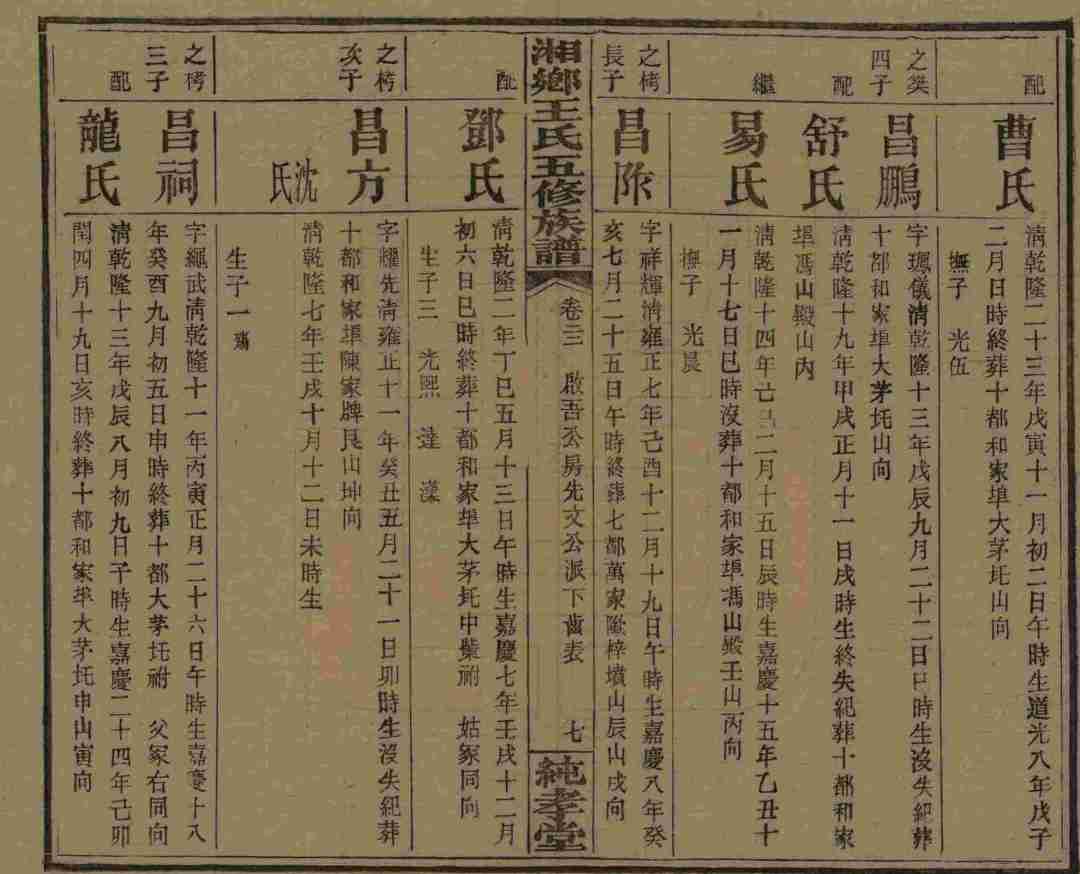 配
曹氏
清乾隆二十三年戊寅十一月初二日午時生道光八年戊子
二月日時終葬十都和家埠大茅圫山向
撫子 光伍
之癸
四子
昌鵬
字珮儀清乾隆十三年戊辰九月二十二日巳時生沒失紀葬
十都和家埠大茅圫山向
配
舒氏
清乾隆十九年甲戌正月十一日戌時生終失紀葬十都和家
埠馮山殿山內
繼
易氏
清乾隆十四年己巳二月十五日辰時生嘉慶十五年乙丑十
一月十七日巳時沒葬十都和家埠馮山殿壬山丙向
撫子 光晨
之栲
長子
昌阼
字祥輝清雍正七年己酉十二月十九日午時生嘉慶八年癸
亥七月二十五日午時終葬七都萬家隴梓墳山辰山戌向
湘鄉王氏五修族譜
卷三 啟吾公房先文公派下齒表 七
純孝堂
配
鄧氏
清乾隆二年丁巳五月十三日午時生嘉慶七年壬戌十二月
初六日巳時終葬十都和家埠大茅圫中䯻祔 姑冢同向
生子三 光熙 達 漾
之栲
次子
昌方
字耀先清雍正十一年癸丑五月二十一日卯時生沒失紀葬
十都和家埠陳家牌艮山坤向
沈氏
清乾隆七年壬戌十月十二日未時生
生子一 殤
之栲
三子
昌祠
字繩武清乾隆十一年丙寅正月二十六日午時生嘉慶十八
年癸酉九月初五日申時終葬十都大茅圫祔 父冢右同向
配
龍氏
清乾隆十三年戊辰八月初九日子時生嘉慶二十四年己卯
閏四月十九日亥時終葬十都和家埠大茅圫申山寅向